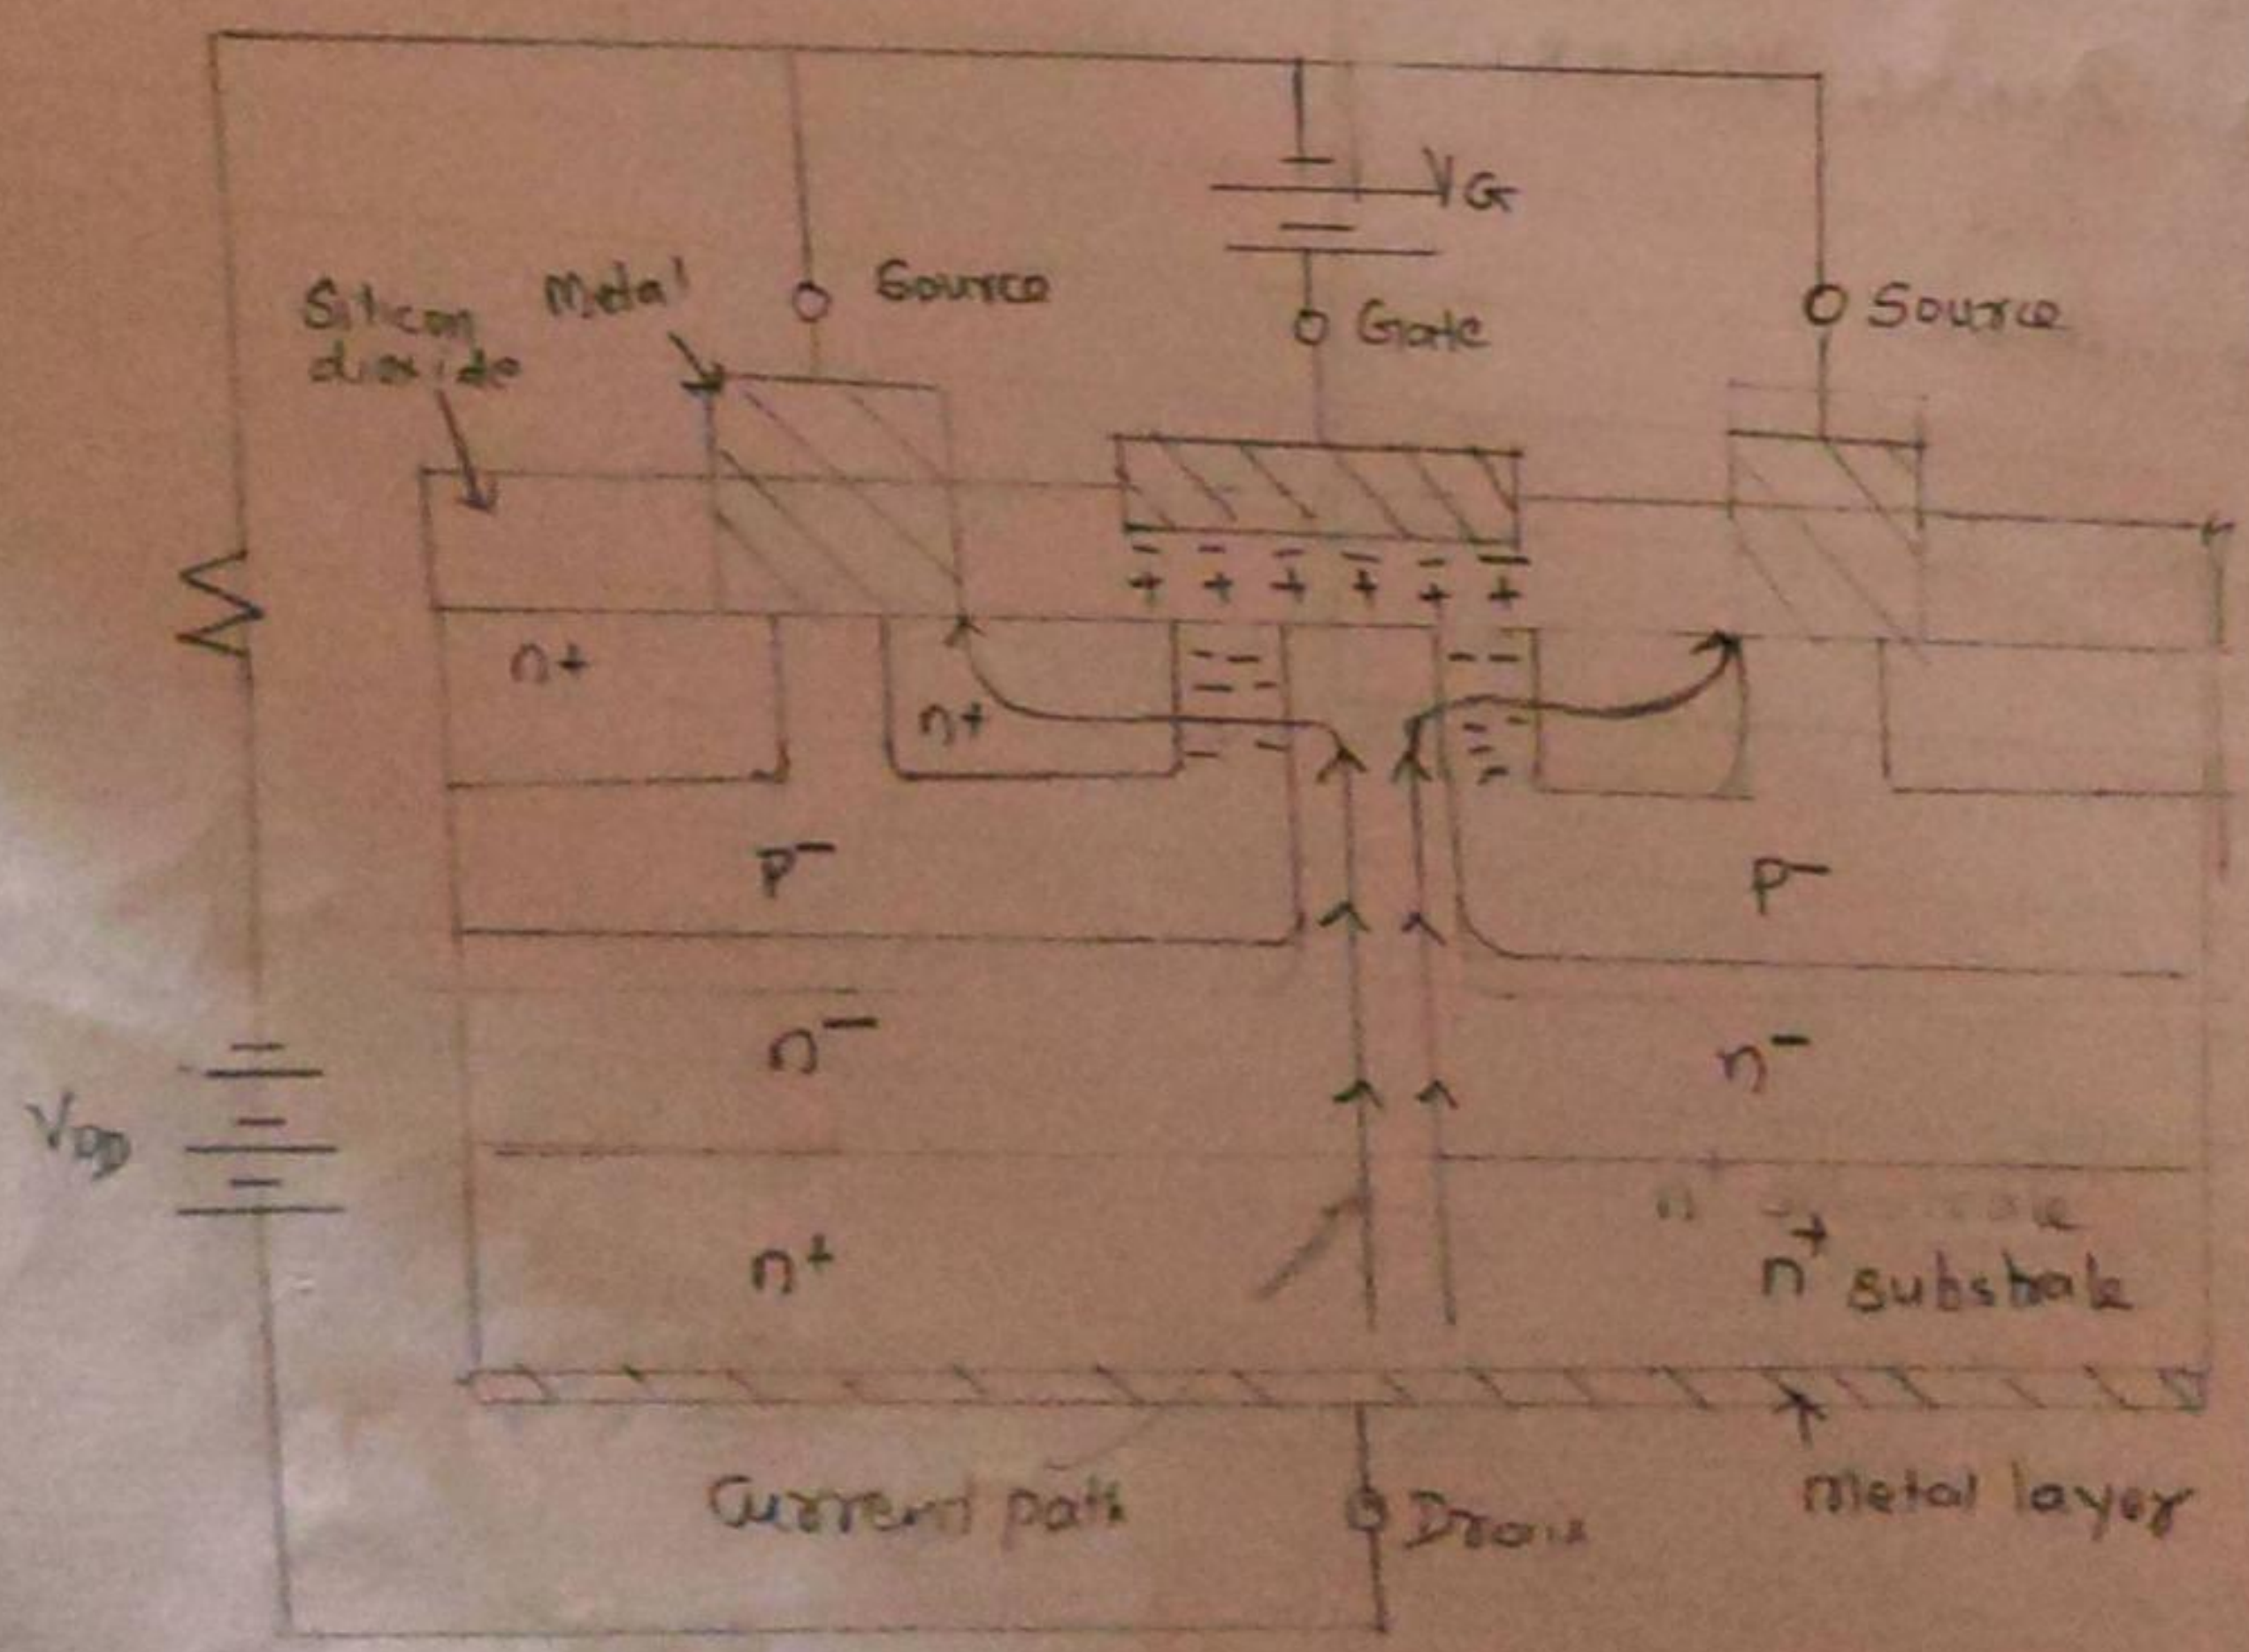 VG
Silicon
dioxide
Metal
Source
Gate
Source
n+
n+
P−
P−
n−
n−
VDD
n+
n+ substrate
Current path
Drain
Metal layer